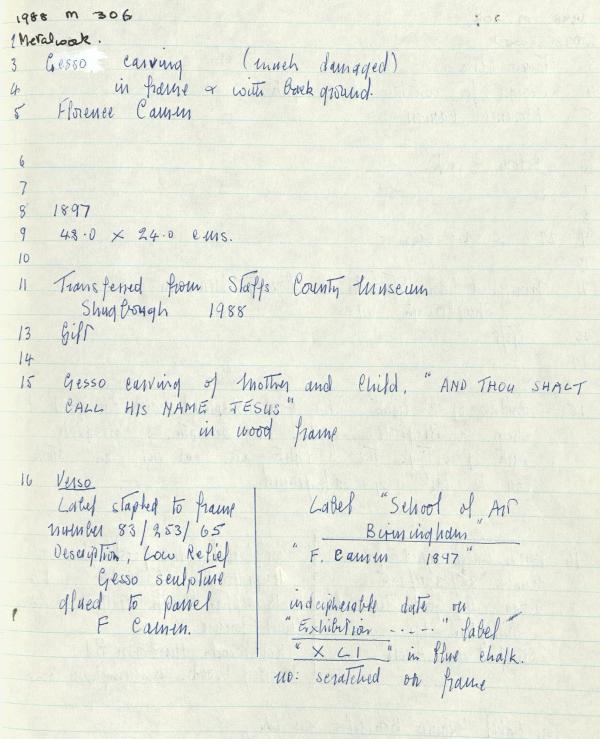 1988 M 306
1 Metalwork.
3 Gesso carving (much damaged)
4 in frame & with background.
5 Florence Camm
6
7
8 1897
9 48.0 x 24.0 cms.
10
11 Transferred from Staffs County Museum
Shugborough 1988
13 Gift
14
15 Gesso carving of Mother and Child. "AND THOU SHALT
CALL HIS NAME JESUS"
in wood frame
16 Verso
Label stapled to frame
number 83/253/65
Description, Low Relief
Gesso sculpture
glued to panel
F Camm.
Label "School of Art
Birmingham"
"F. Camm 1897"
indecipherable date on
"Exhibition ....." label
"X L 1" in blue chalk.
no: scratched on frame